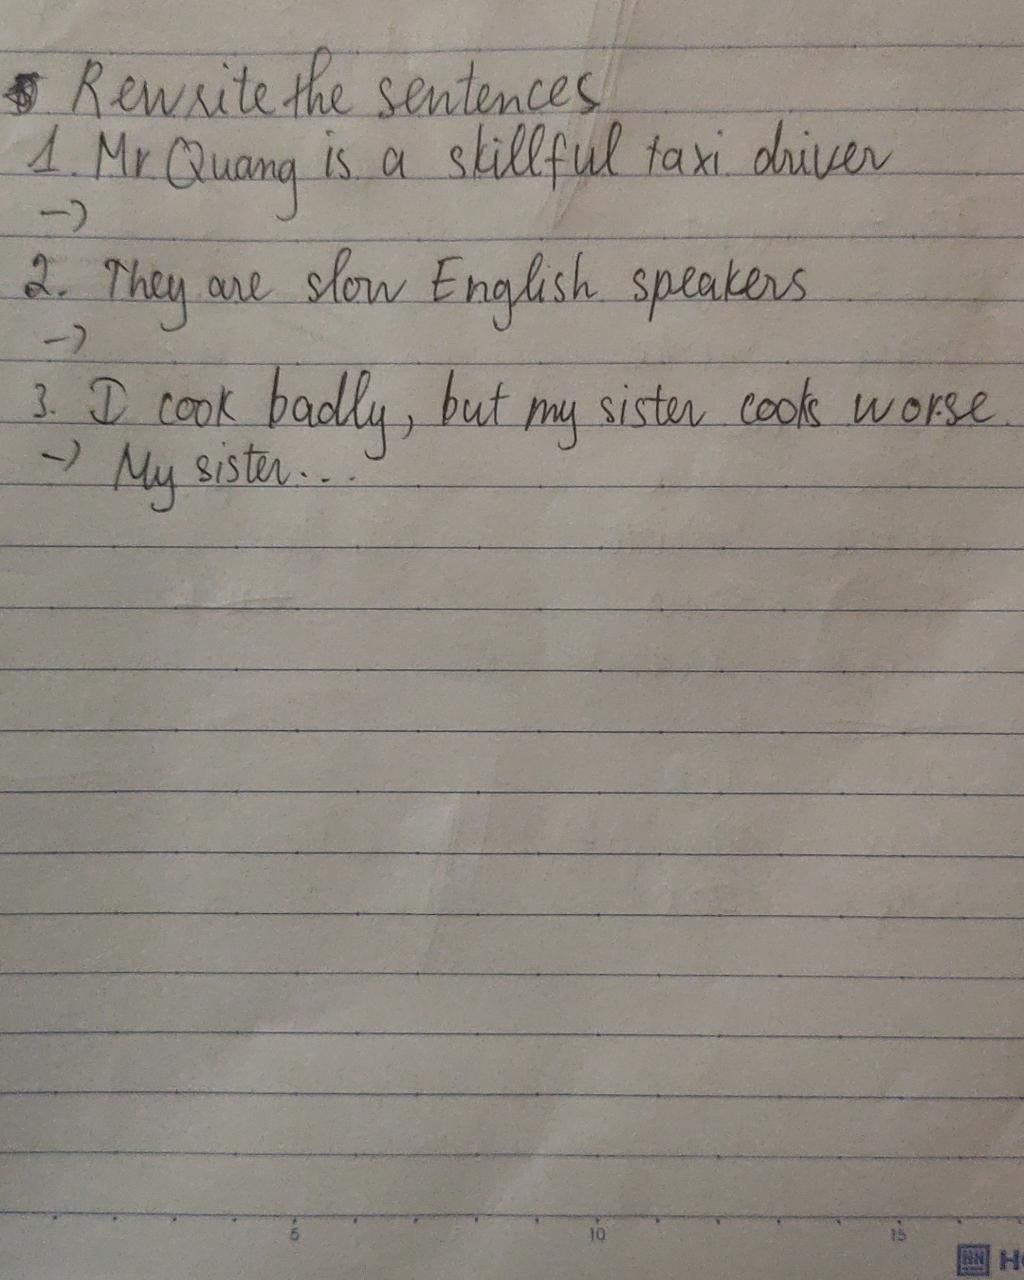 Rewrite the sentences
1. Mr Quang is a skillful taxi driver
->
2. They are slow English speakers
->
3. I cook badly, but my sister cooks worse.
-> My sister...
5 10 15
HN